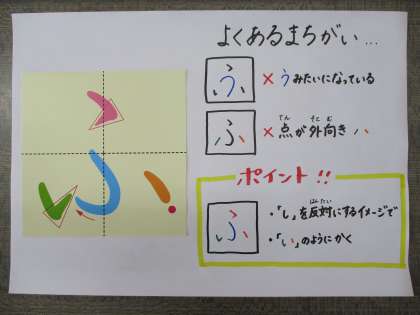 よくあるまちがい…
ふ
× うみたいになっている
ふ
× 点が外向き
てん そとむ
ポイント!!
ふ
・「し」を反対にするイメージで
はんたい
・「い」のようにかく
ふ